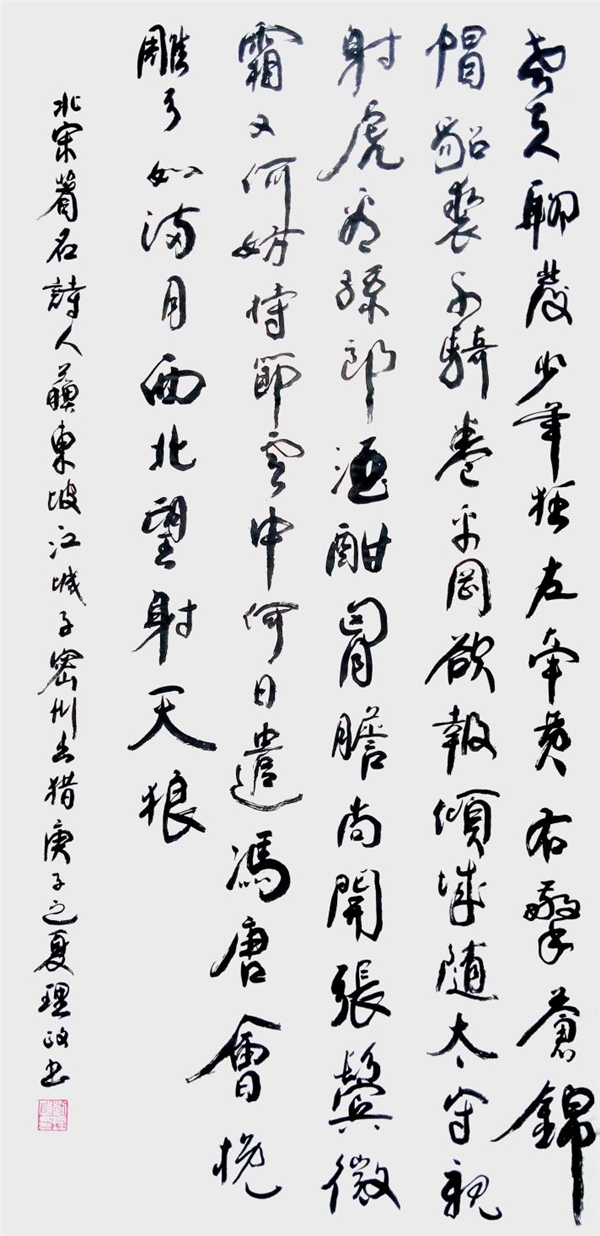 老夫聊發少年狂左牽黃右擎蒼錦
帽貂裘千騎卷平岡欲報傾城随太守親
射虎看孫郎酒酣胷膽尚開張鬢微
霜又何妨持節雲中何日遣馮唐會挽
雕弓如滿月西北望射天狼
北宋著名詩人蘇東坡江城子密州出猎庚子之夏理政书